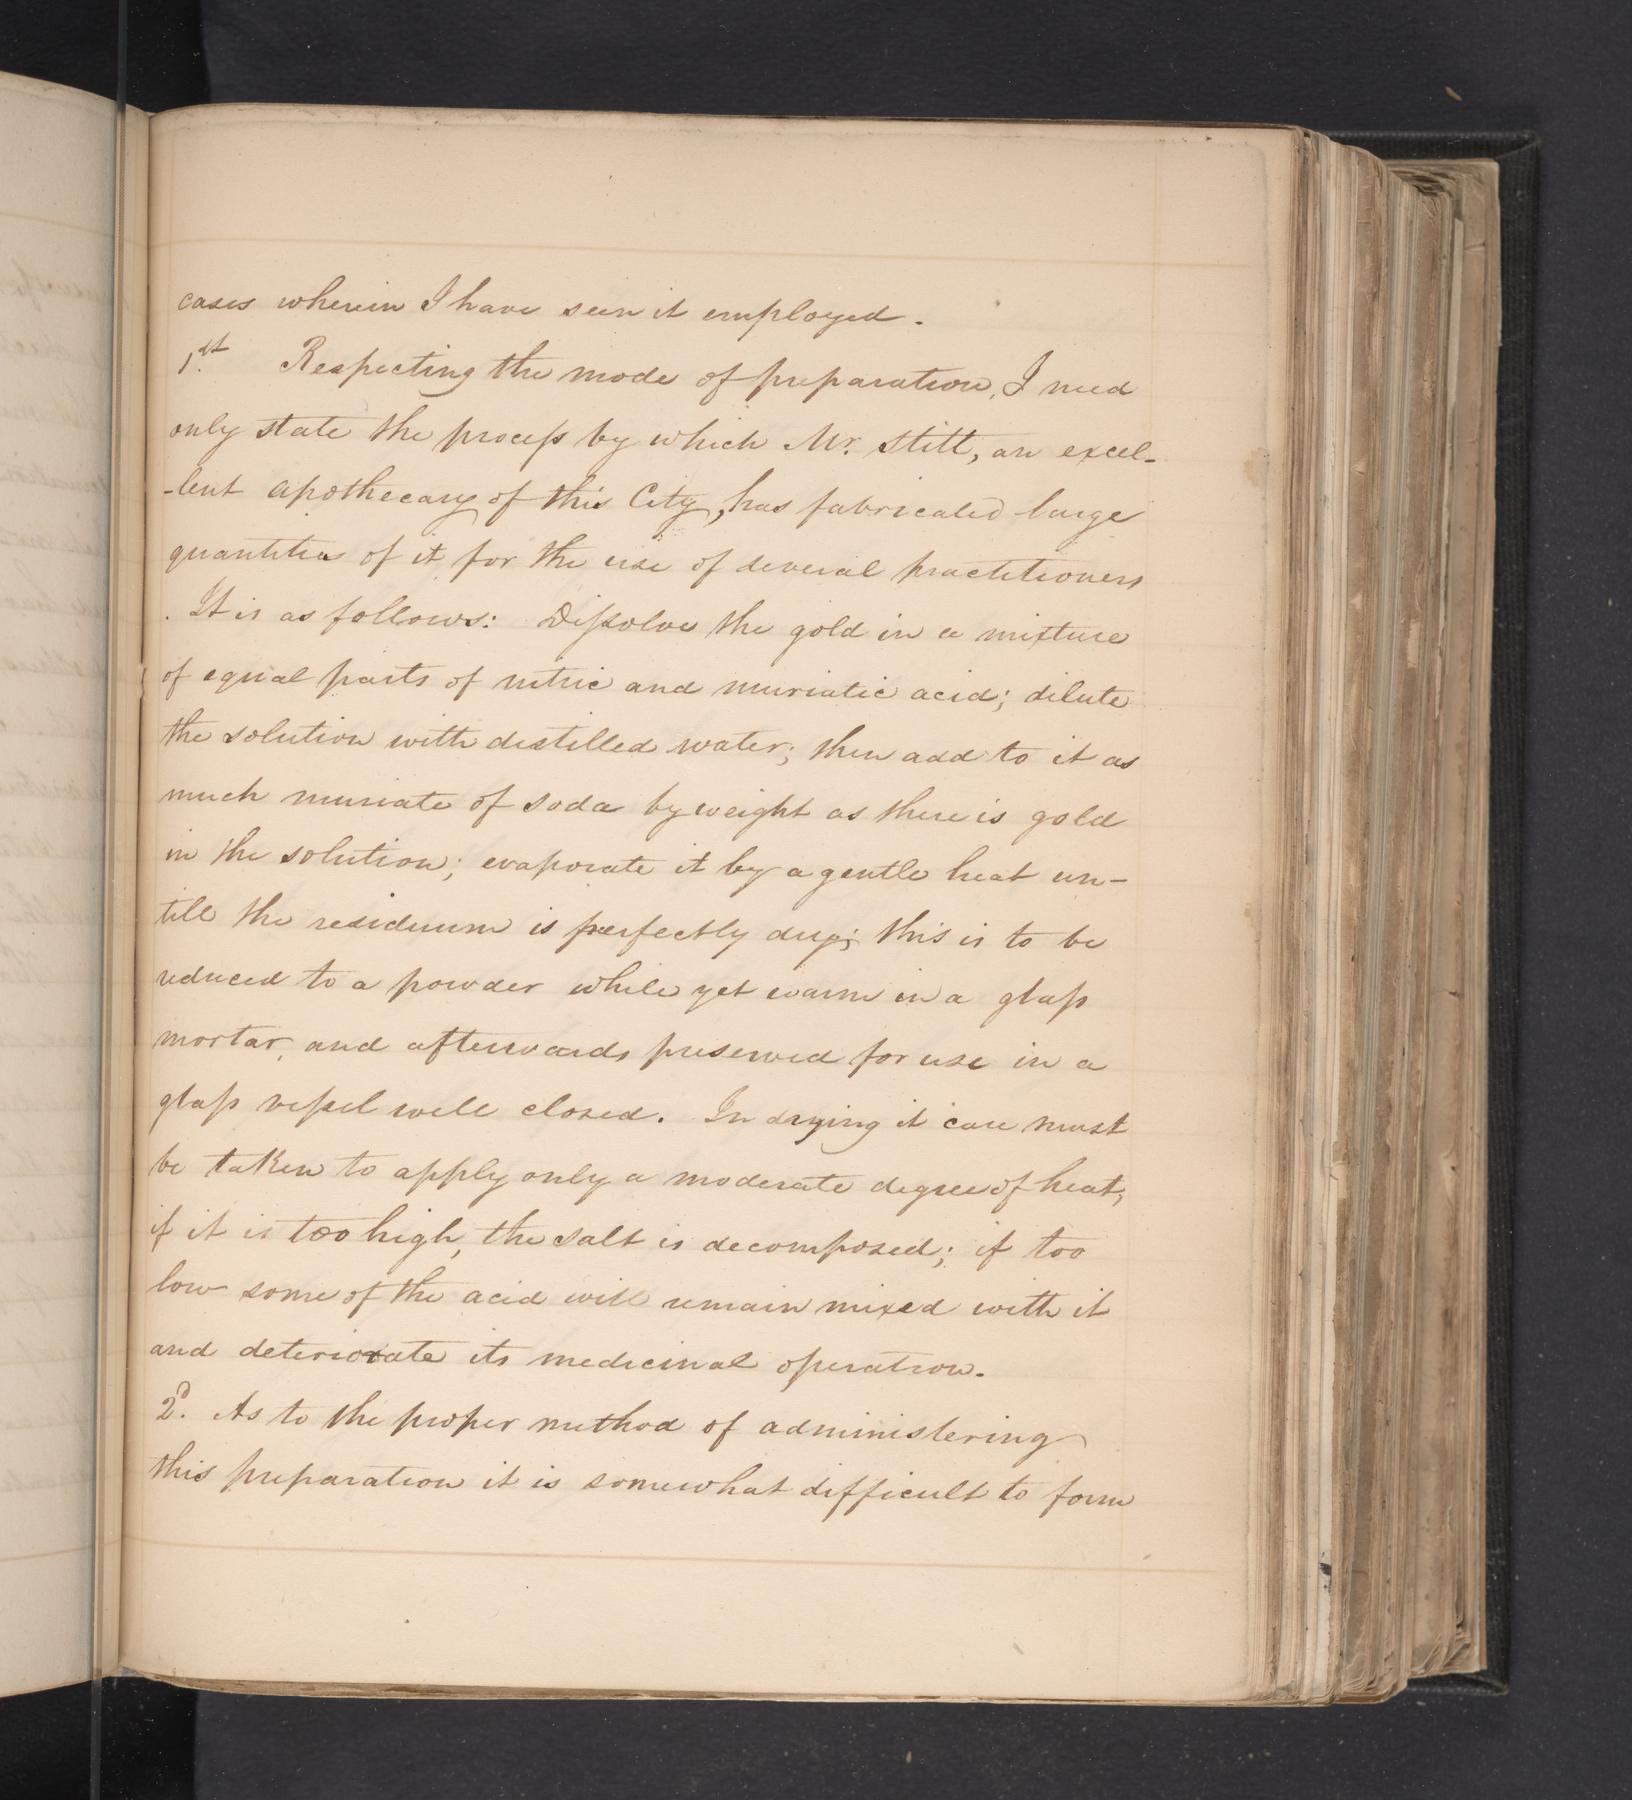 cases wherein I have seen it employed.
1.st Respecting the mode of preparation, I need
only state the process by which Mr. Stitt, an excel-
-lent apothecary of this City, has fabricated large
quantities of it for the use of several practitioners
. It is as follows: Dissolve the gold in a mixture
of equal parts of nitric and muriatic acid; dilute
the solution with distilled water; then add to it as
much muriate of soda by weight as there is gold
in the solution; evaporate it by a gentle heat un-
till the residuum is perfectly dry; this is to be
reduced to a powder while yet warm in a glass
mortar, and afterwards preserved for use in a
glass vessel well closed. In drying it care must
be taken to apply only a moderate degree of heat,
if it is too high, the salt is decomposed; if too
low some of the acid will remain mixed with it
and deteriorate its medicinal operation.
2.d As to the proper method of administering
this preparation it is somewhat difficult to form